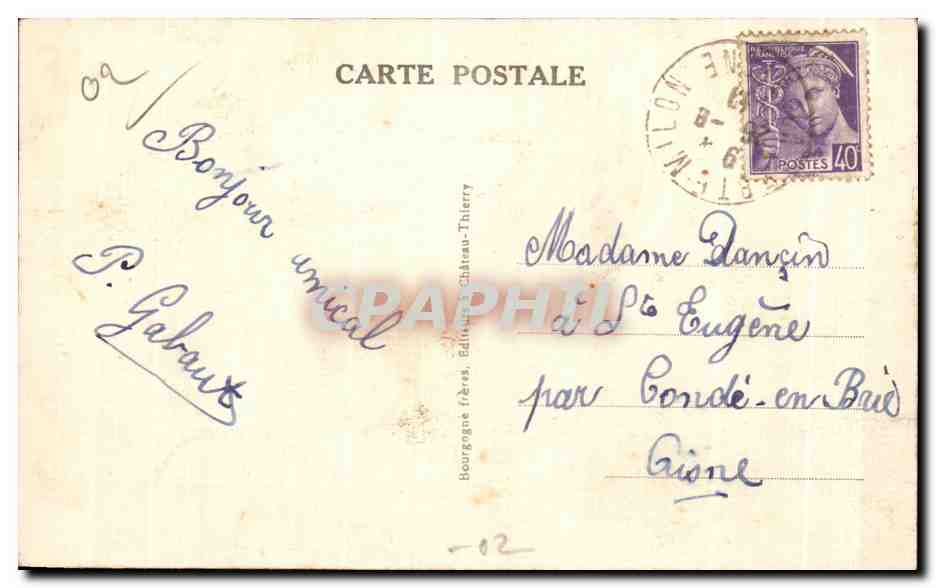 CARTE POSTALE
02
Bonjour amical
P. Gabaut
Bourgogne frères, Editeurs à Château-Thierry
RÉPUBLIQUE
FRANÇAISE
POSTES 40c
MILON
NE
Madame Dançin
à Ste Eugène
par Condé-en-Brie
Aisne
CPAPHIL
-02